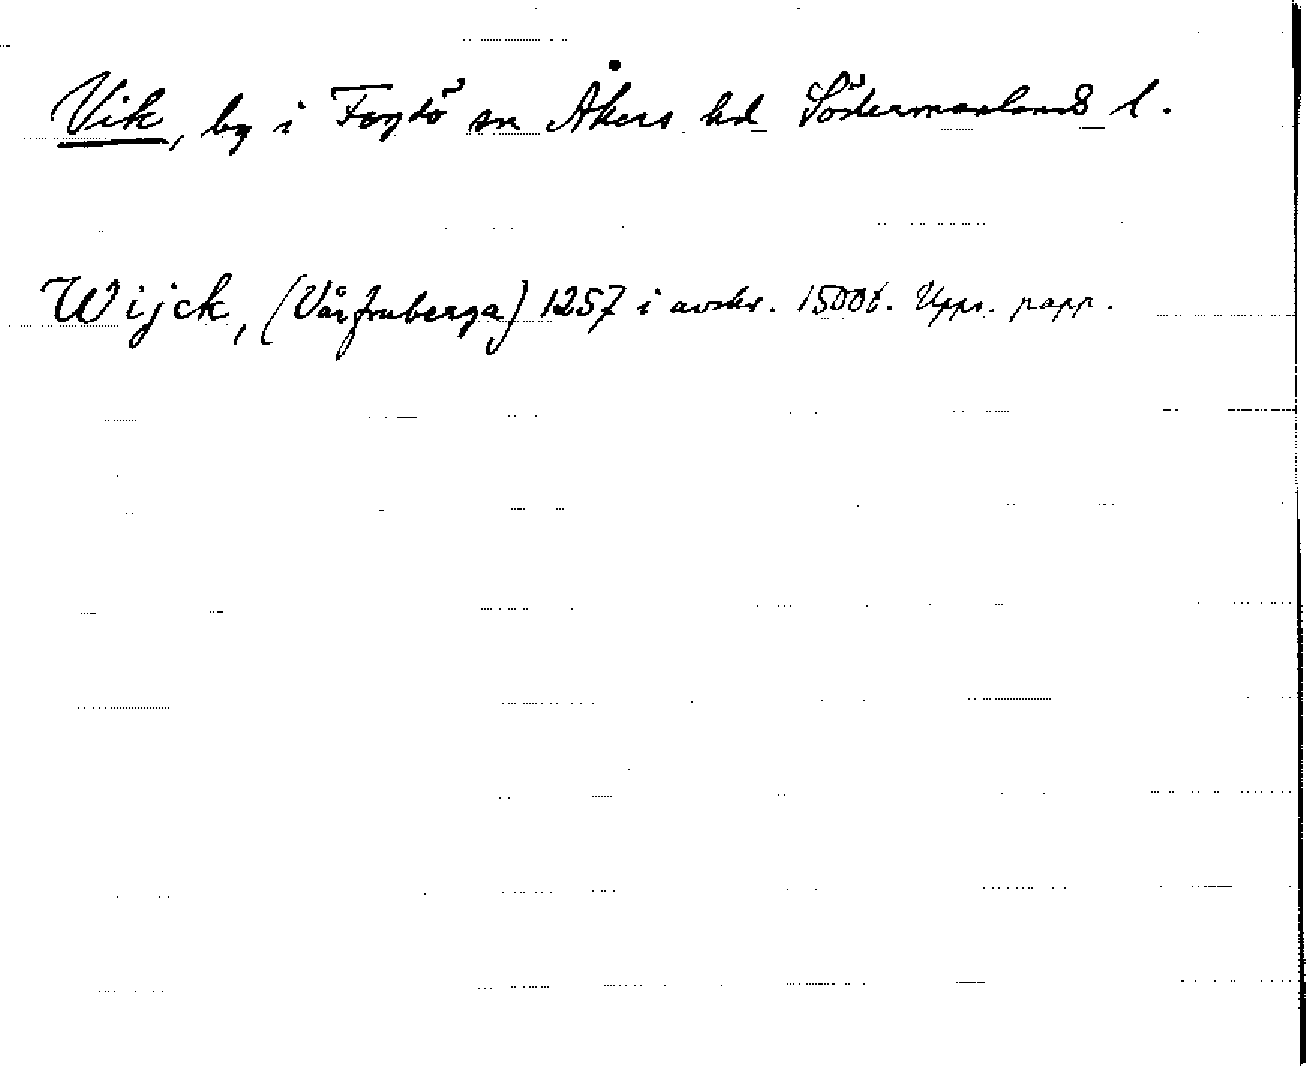 Vik, by i Fogdö sn Åkers hd Södermanlands l.
Wijck, (Vårfruberga) 1257 i avskr. 1500t. Upps. papp.